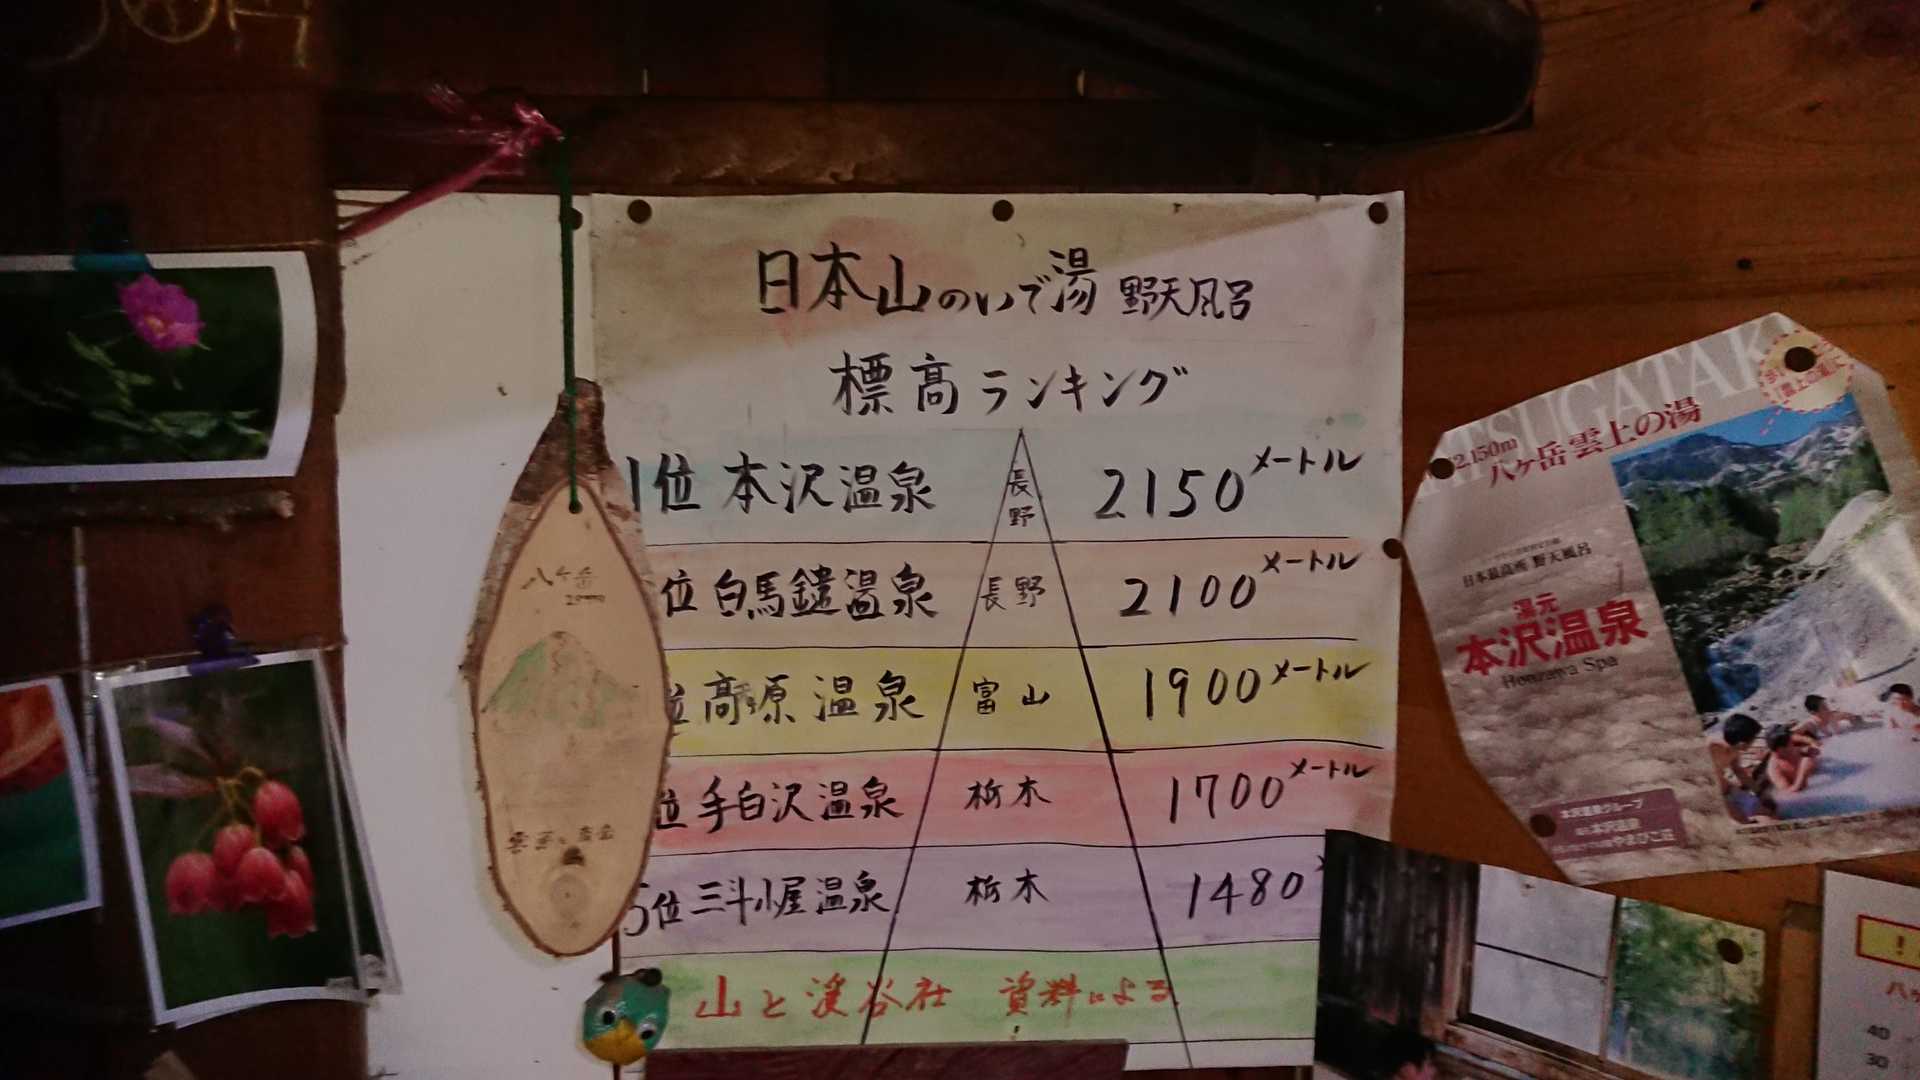 日本山のいで湯 野天風呂
標高ランキング
1位 本沢温泉 長野 2150メートル
位 白馬鑓温泉 長野 2100メートル
位 高原温泉 富山 1900メートル
位 手白沢温泉 栃木 1700メートル
5位 三斗小屋温泉 栃木 1480
山と渓谷社 資料による
八ケ岳
2,150m
八ケ岳 雲上の湯
日本最高所 野天風呂
湯元
本沢温泉
Honzawa Spa
本沢温泉グループ
本沢温泉
やまびこ荘